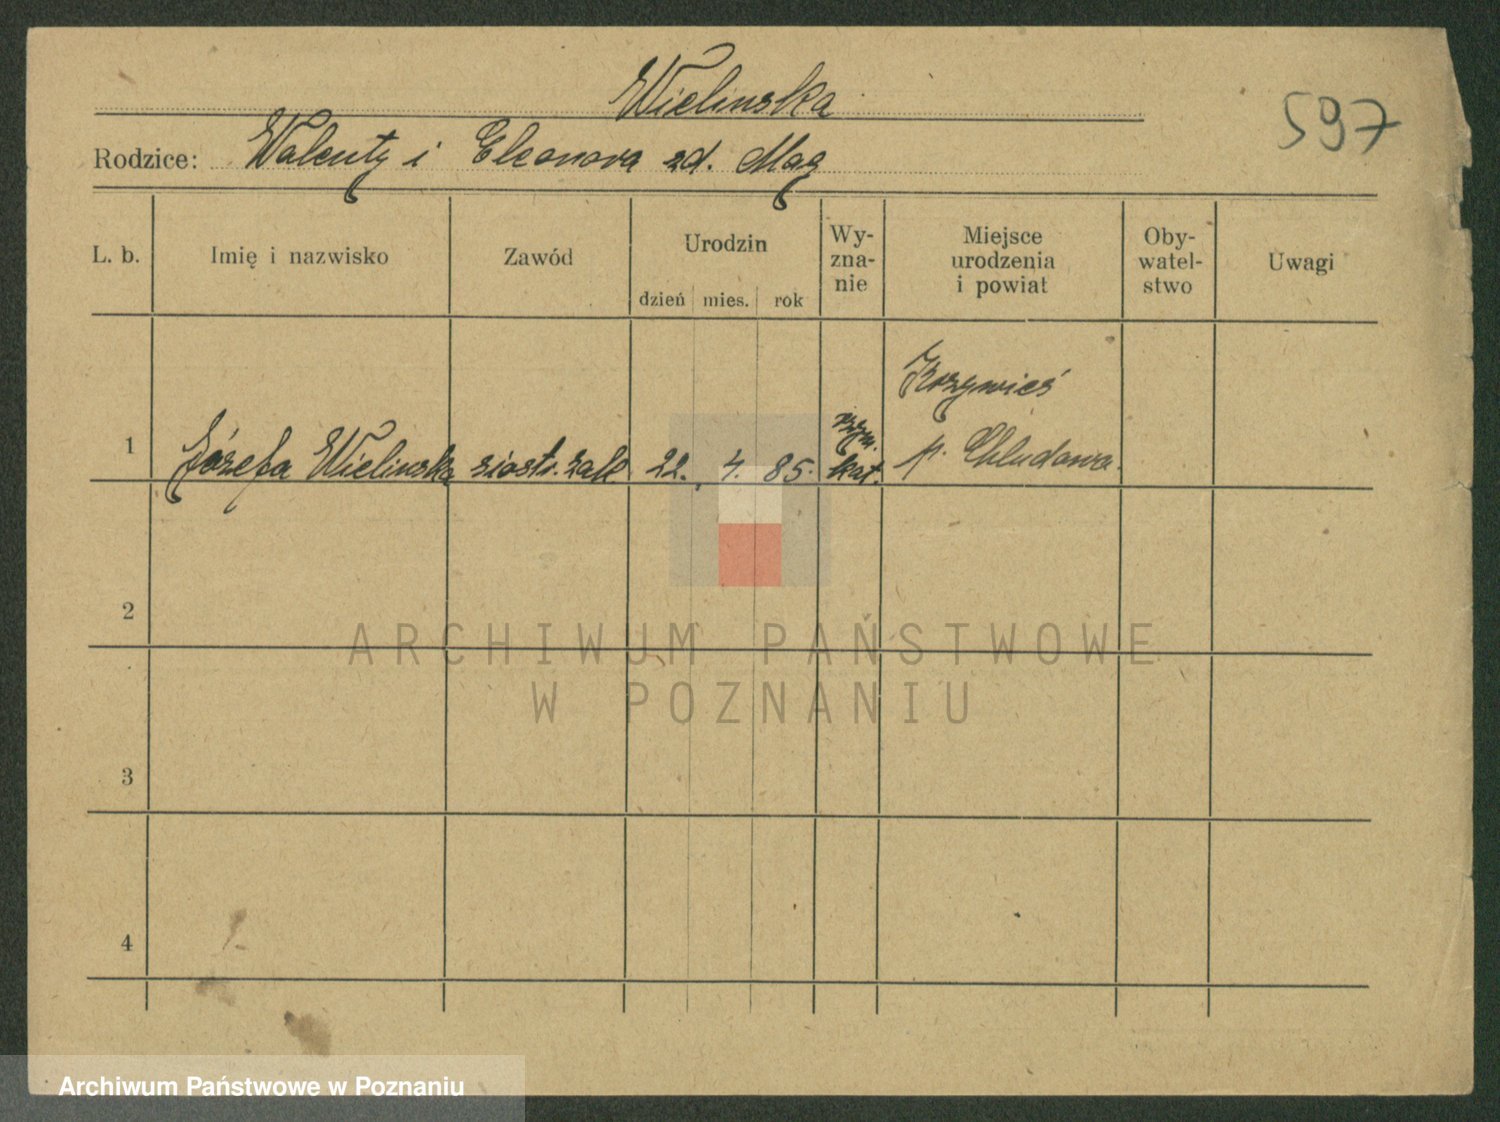 Wielinska
597
Rodzice: Walenty i Eleonora zd. Mag
L. b.
Imię i nazwisko
Zawód
Urodzin
dzień mies. rok
Wy-
zna-
nie
Miejsce
urodzenia
i powiat
Oby-
watel-
stwo
Uwagi
1
Józefa Wielinska
siostr. zak
22. 4. 85.
rzym.
kat.
Krzywieś
p. Chludowa.
2
3
4
ARCHIWUM PAŃSTWOWE
W POZNANIU
Archiwum Państwowe w Poznaniu